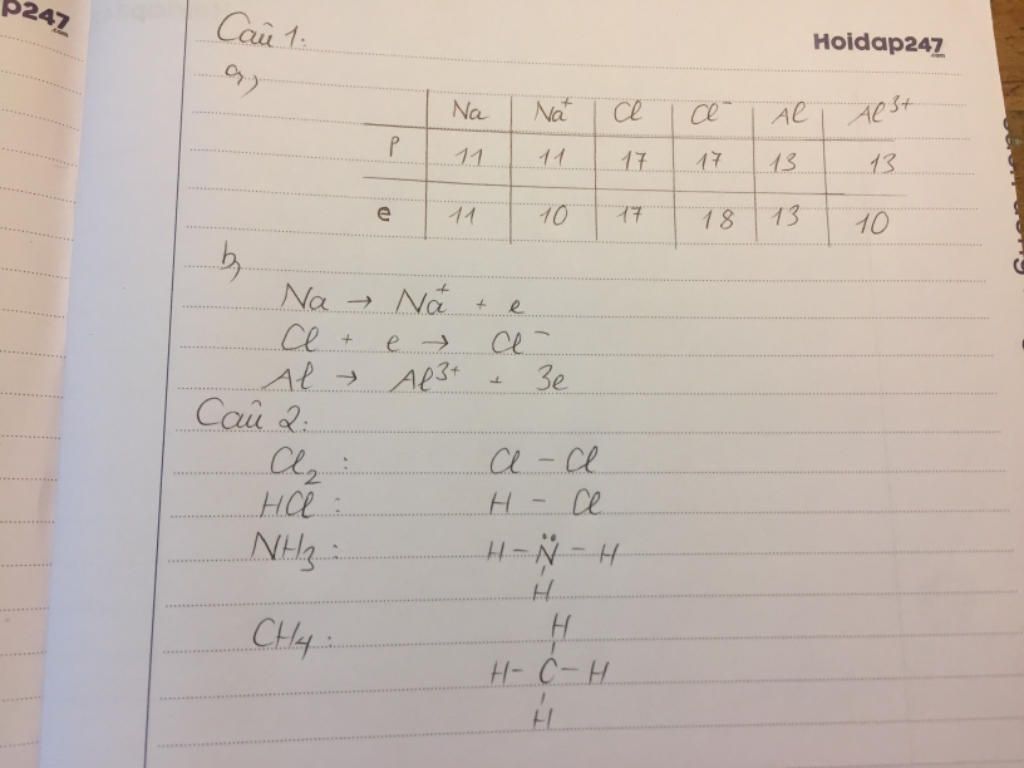 p247
.com
Hoidap247
.com
Câu 1:
a,
Na Na⁺ Cl Cl⁻ Al Al³⁺
p 11 11 17 17 13 13
e 11 10 17 18 13 10
b,
Na → Na⁺ + e
Cl + e → Cl⁻
Al → Al³⁺ + 3e
Câu 2:
Cl₂ : Cl – Cl
HCl : H – Cl
NH₃ : H – N̈ – H
H
H
CH₄ : H – C – H
H